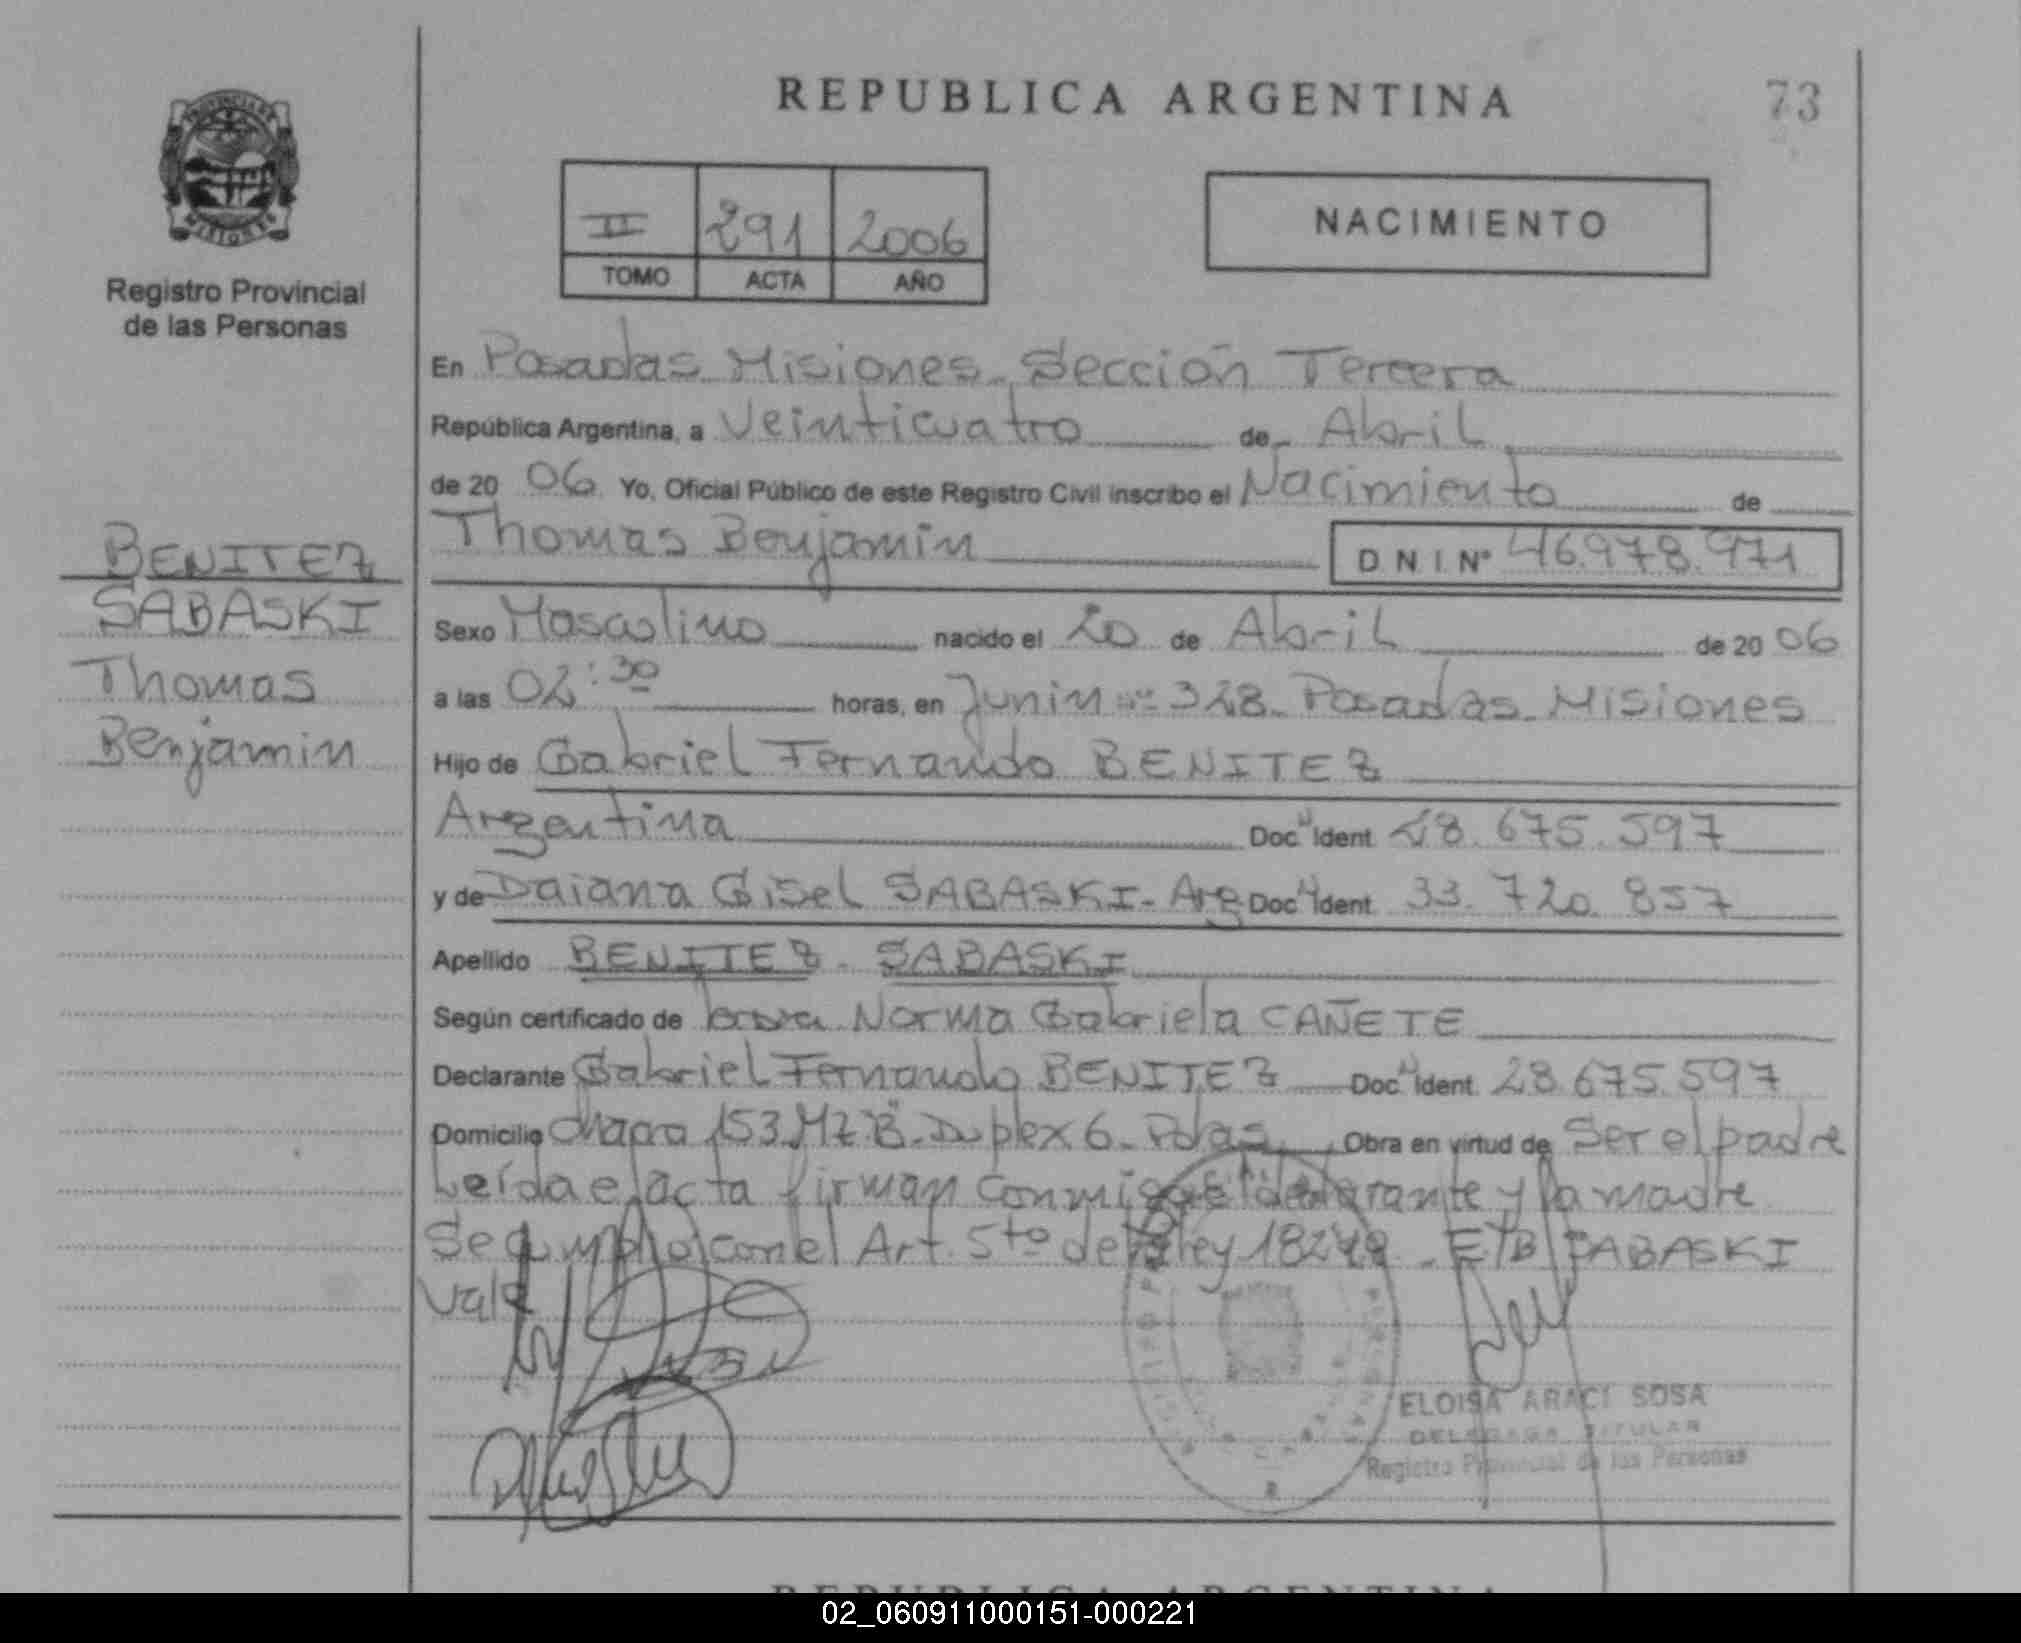 REPUBLICA ARGENTINA
73
PROVINCIA DE
MISIONES
Registro Provincial
de las Personas
II 291 2006
TOMO ACTA AÑO
NACIMIENTO
BENITEZ
SABASKI
Thomas
Benjamin
En Posadas Misiones Sección Tercera
República Argentina, a Veinticuatro de Abril
de 20 06 Yo, Oficial Público de este Registro Civil inscribo el Nacimiento de
Thomas Benjamin D.N.I. Nº 46.978.971
Sexo Masculino nacido el 20 de Abril de 20 06
a las 02:30 horas, en Junin 328 Posadas Misiones
Hijo de Gabriel Fernando BENITEZ
Argentina Doc Ident. 28.675.597
y de Daiana Gisel SABASKI - Arg Doc Ident. 33.720.857
Apellido BENITEZ - SABASKI
Según certificado de Norma Gabriela CAÑETE
Declarante Gabriel Fernando BENITEZ Doc Ident. 28.675.597
Domicilio 153 MZ "B" Duplex 6 - Pdas Obra en virtud de Ser el padre
Leída el acta firman conmigo el declarante y la madre
Se cumplio con el Art. 5to de la ley 18249 - E/B SABASKI
Vale
ELOISA ARACI SOSA
DELEGADA TITULAR
Registro Provincial de las Personas
REPUBLICA ARGENTINA
02_060911000151-000221